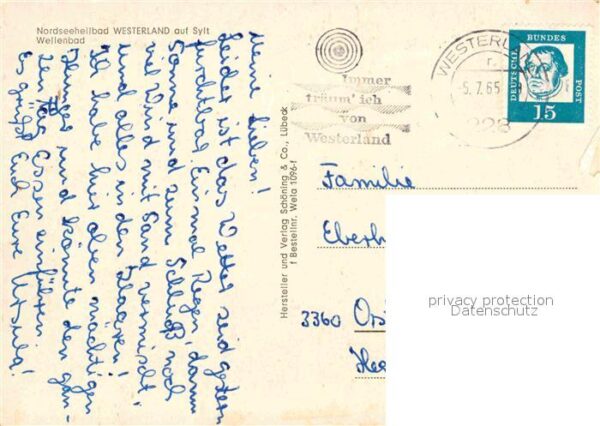 Nordseeheilbad WESTERLAND auf Sylt
Wellenbad
Meine Lieben!
Leider ist das Wetter seid gestern
furchtbar. Einmal Regen, dann
Sonne und zum Schluß noch
viel Wind mit Sand vermischt
und alles in den Haaren!
Ich habe hier oben mächtigen
Hunger und könnte den gan-
zen Tag Essen einführen.
Es grüßt Euch Eure Ursula!
Hersteller und Verlag Schöning & Co., Lübeck
f Bestellnr. Wela 1096-f
Immer
träum' ich
von
Westerland
WESTERL
5.7.65
228
DEUTSCHE BUNDES POST
15
Familie
Eberh
3360 Ost
privacy protection
Datenschutz